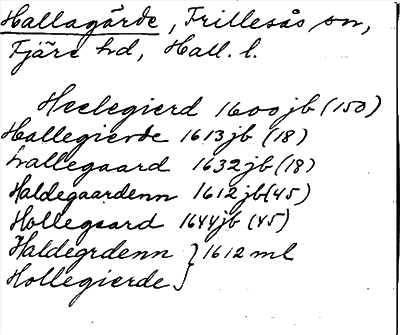 Hallagärde, Frillesås sn,
Fjäre hd, Hall. l.
Heelegierd 1600 jb (150)
Hallegierde 1613 jb (18)
hallegaard 1632 jb (18)
Haldegaardenn 1612 jb (45)
Hollegaard 1644 jb (45)
Haldegrdenn } 1612 ml
Hollegierde